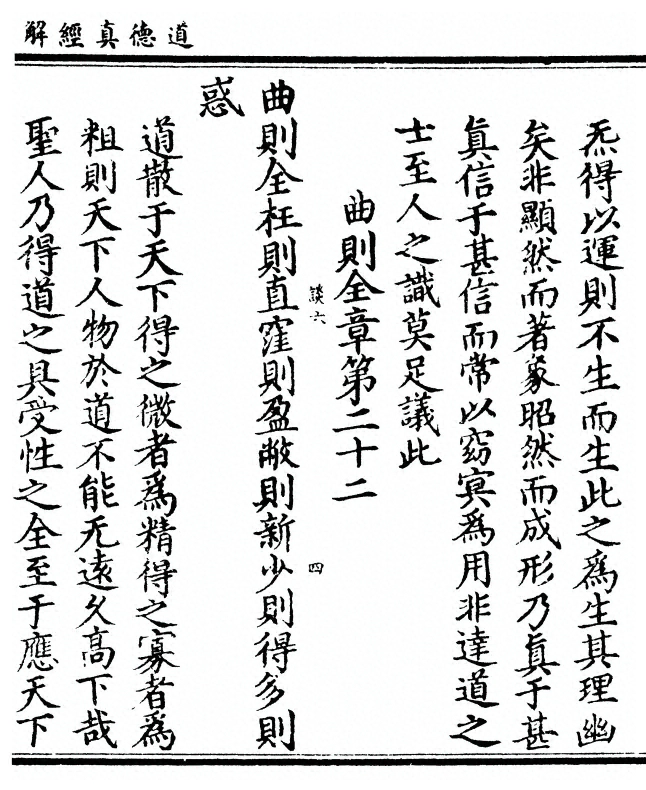 道德真經解
炁得以運則不生而生此之爲生其理幽
矣非顯然而著象昭然而成形乃眞于甚
眞信于甚信而常以窈冥爲用非達道之
士至人之識莫足議此
曲則全章第二十二
談六
四
曲則全枉則直窪則盈敝則新少則得多則
惑
道散于天下得之微者爲精得之寡者爲
粗則天下人物於道不能无遠久高下哉
聖人乃得道之具受性之全至于應天下